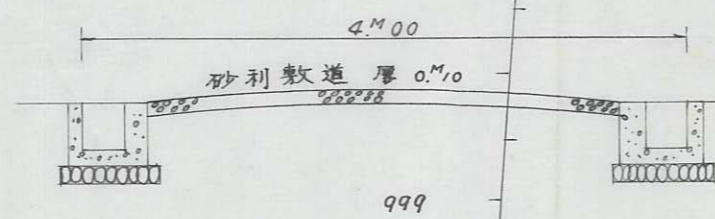 4.ᴹ00
砂利敷道 厚 0.ᴹ10
999